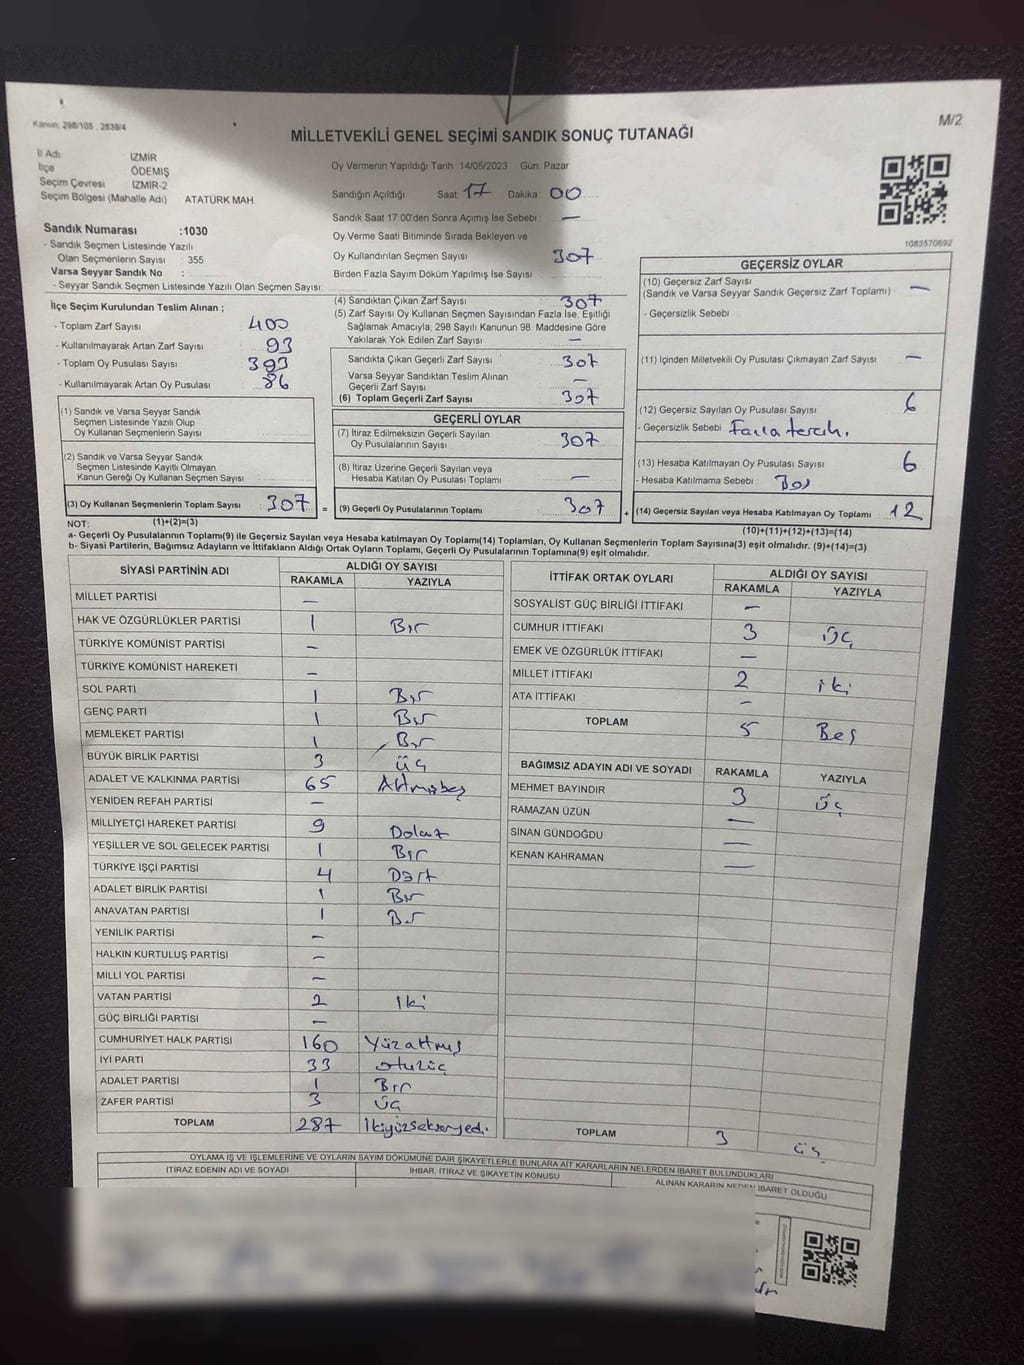 Kanun: 298/105 , 2839/4
M/2
MİLLETVEKİLİ GENEL SEÇİMİ SANDIK SONUÇ TUTANAĞI
İl Adı İZMİR
İlçe ÖDEMİŞ
Seçim Çevresi İZMİR-2
Seçim Bölgesi (Mahalle Adı) ATATÜRK MAH.
Sandık Numarası :1030
- Sandık Seçmen Listesinde Yazılı
Olan Seçmenlerin Sayısı : 355
Varsa Seyyar Sandık No :
- Seyyar Sandık Seçmen Listesinde Yazılı Olan Seçmen Sayısı:
Oy Vermenin Yapıldığı Tarih :14/05/2023 Gün: Pazar
Sandığın Açıldığı Saat: 17 Dakika: 00
Sandık Saat 17:00'den Sonra Açımış İse Sebebi : —
Oy Verme Saati Bitiminde Sırada Bekleyen ve
Oy Kullandırılan Seçmen Sayısı 307
Birden Fazla Sayım Döküm Yapılmış İse Sayısı :
1083570692
İlçe Seçim Kurulundan Teslim Alınan ;
- Toplam Zarf Sayısı : 400
- Kullanılmayarak Artan Zarf Sayısı : 93
- Toplam Oy Pusulası Sayısı : 393
- Kullanılmayarak Artan Oy Pusulası : 86
(1) Sandık ve Varsa Seyyar Sandık
Seçmen Listesinde Yazılı Olup
Oy Kullanan Seçmenlerin Sayısı :
(2) Sandık ve Varsa Seyyar Sandık
Seçmen Listesinde Kayıtlı Olmayan
Kanun Gereği Oy Kullanan Seçmen Sayısı :
(3) Oy Kullanan Seçmenlerin Toplam Sayısı : 307 =
(1)+(2)=(3)
(4) Sandıktan Çıkan Zarf Sayısı : 307
(5) Zarf Sayısı Oy Kullanan Seçmen Sayısından Fazla İse, Eşitliği
Sağlamak Amacıyla; 298 Sayılı Kanunun 98. Maddesine Göre
Yakılarak Yok Edilen Zarf Sayısı : —
Sandıkta Çıkan Geçerli Zarf Sayısı : 307
Varsa Seyyar Sandıktan Teslim Alınan
Geçerli Zarf Sayısı : —
(6) Toplam Geçerli Zarf Sayısı : 307
GEÇERLİ OYLAR
(7) İtiraz Edilmeksizin Geçerli Sayılan
Oy Pusulalarının Sayısı : 307
(8) İtiraz Üzerine Geçerli Sayılan veya
Hesaba Katılan Oy Pusulası Toplamı : —
(9) Geçerli Oy Pusulalarının Toplamı : 307 +
GEÇERSİZ OYLAR
(10) Geçersiz Zarf Sayısı
(Sandık ve Varsa Seyyar Sandık Geçersiz Zarf Toplamı) : —
- Geçersizlik Sebebi :
(11) İçinden Milletvekili Oy Pusulası Çıkmayan Zarf Sayısı : —
(12) Geçersiz Sayılan Oy Pusulası Sayısı : 6
- Geçersizlik Sebebi : Fazla tercih.
(13) Hesaba Katılmayan Oy Pusulası Sayısı : 6
- Hesaba Katılmama Sebebi : Boş
(14) Geçersiz Sayılan veya Hesaba Katılmayan Oy Toplamı : 12
(10)+(11)+(12)+(13)=(14)
NOT:
a- Geçerli Oy Pusulalarının Toplamı(9) ile Geçersiz Sayılan veya Hesaba Katılmayan Oy Toplamı(14) Toplamları, Oy Kullanan Seçmenlerin Toplam Sayısına(3) eşit olmalıdır. (9)+(14)=(3)
b- Siyasi Partilerin, Bağımsız Adayların ve İttifakların Aldığı Ortak Oyların Toplamı, Geçerli Oy Pusulalarının Toplamına(9) eşit olmalıdır.
SİYASİ PARTİNİN ADI ALDIĞI OY SAYISI
RAKAMLA YAZIYLA
MİLLET PARTİSİ —
HAK VE ÖZGÜRLÜKLER PARTİSİ 1 Bir
TÜRKİYE KOMÜNİST PARTİSİ —
TÜRKİYE KOMÜNİST HAREKETİ —
SOL PARTİ 1 Bir
GENÇ PARTİ 1 Bir
MEMLEKET PARTİSİ 1 Bir
BÜYÜK BİRLİK PARTİSİ 3 üç
ADALET VE KALKINMA PARTİSİ 65 Altmışbeş
YENİDEN REFAH PARTİSİ —
MİLLİYETÇİ HAREKET PARTİSİ 9 Dokuz
YEŞİLLER VE SOL GELECEK PARTİSİ 1 Bir
TÜRKİYE İŞÇİ PARTİSİ 4 Dört
ADALET BİRLİK PARTİSİ 1 Bir
ANAVATAN PARTİSİ 1 Bir
YENİLİK PARTİSİ —
HALKIN KURTULUŞ PARTİSİ —
MİLLİ YOL PARTİSİ —
VATAN PARTİSİ 2 iki
GÜÇ BİRLİĞİ PARTİSİ —
CUMHURİYET HALK PARTİSİ 160 Yüzaltmış
İYİ PARTİ 33 otuzüç
ADALET PARTİSİ 1 Bir
ZAFER PARTİSİ 3 üç
TOPLAM 287 İkiyüzseksenyedi
İTTİFAK ORTAK OYLARI ALDIĞI OY SAYISI
RAKAMLA YAZIYLA
SOSYALİST GÜÇ BİRLİĞİ İTTİFAKI —
CUMHUR İTTİFAKI 3 üç
EMEK VE ÖZGÜRLÜK İTTİFAKI —
MİLLET İTTİFAKI 2 iki
ATA İTTİFAKI —
TOPLAM 5 Beş
BAĞIMSIZ ADAYIN ADI VE SOYADI RAKAMLA YAZIYLA
MEHMET BAYINDIR 3 üç
RAMAZAN ÜZÜN —
SİNAN GÜNDOĞDU —
KENAN KAHRAMAN —
TOPLAM 3 üç
OYLAMA İŞ VE İŞLEMLERİNE VE OYLARIN SAYIM DÖKÜMÜNE DAİR ŞİKAYETLERLE BUNLARA AİT KARARLARIN NELERDEN İBARET BULUNDUKLARI
İTİRAZ EDENİN ADI VE SOYADI İHBAR, İTİRAZ VE ŞİKAYETİN KONUSU ALINAN KARARIN NEDEN İBARET OLDUĞU